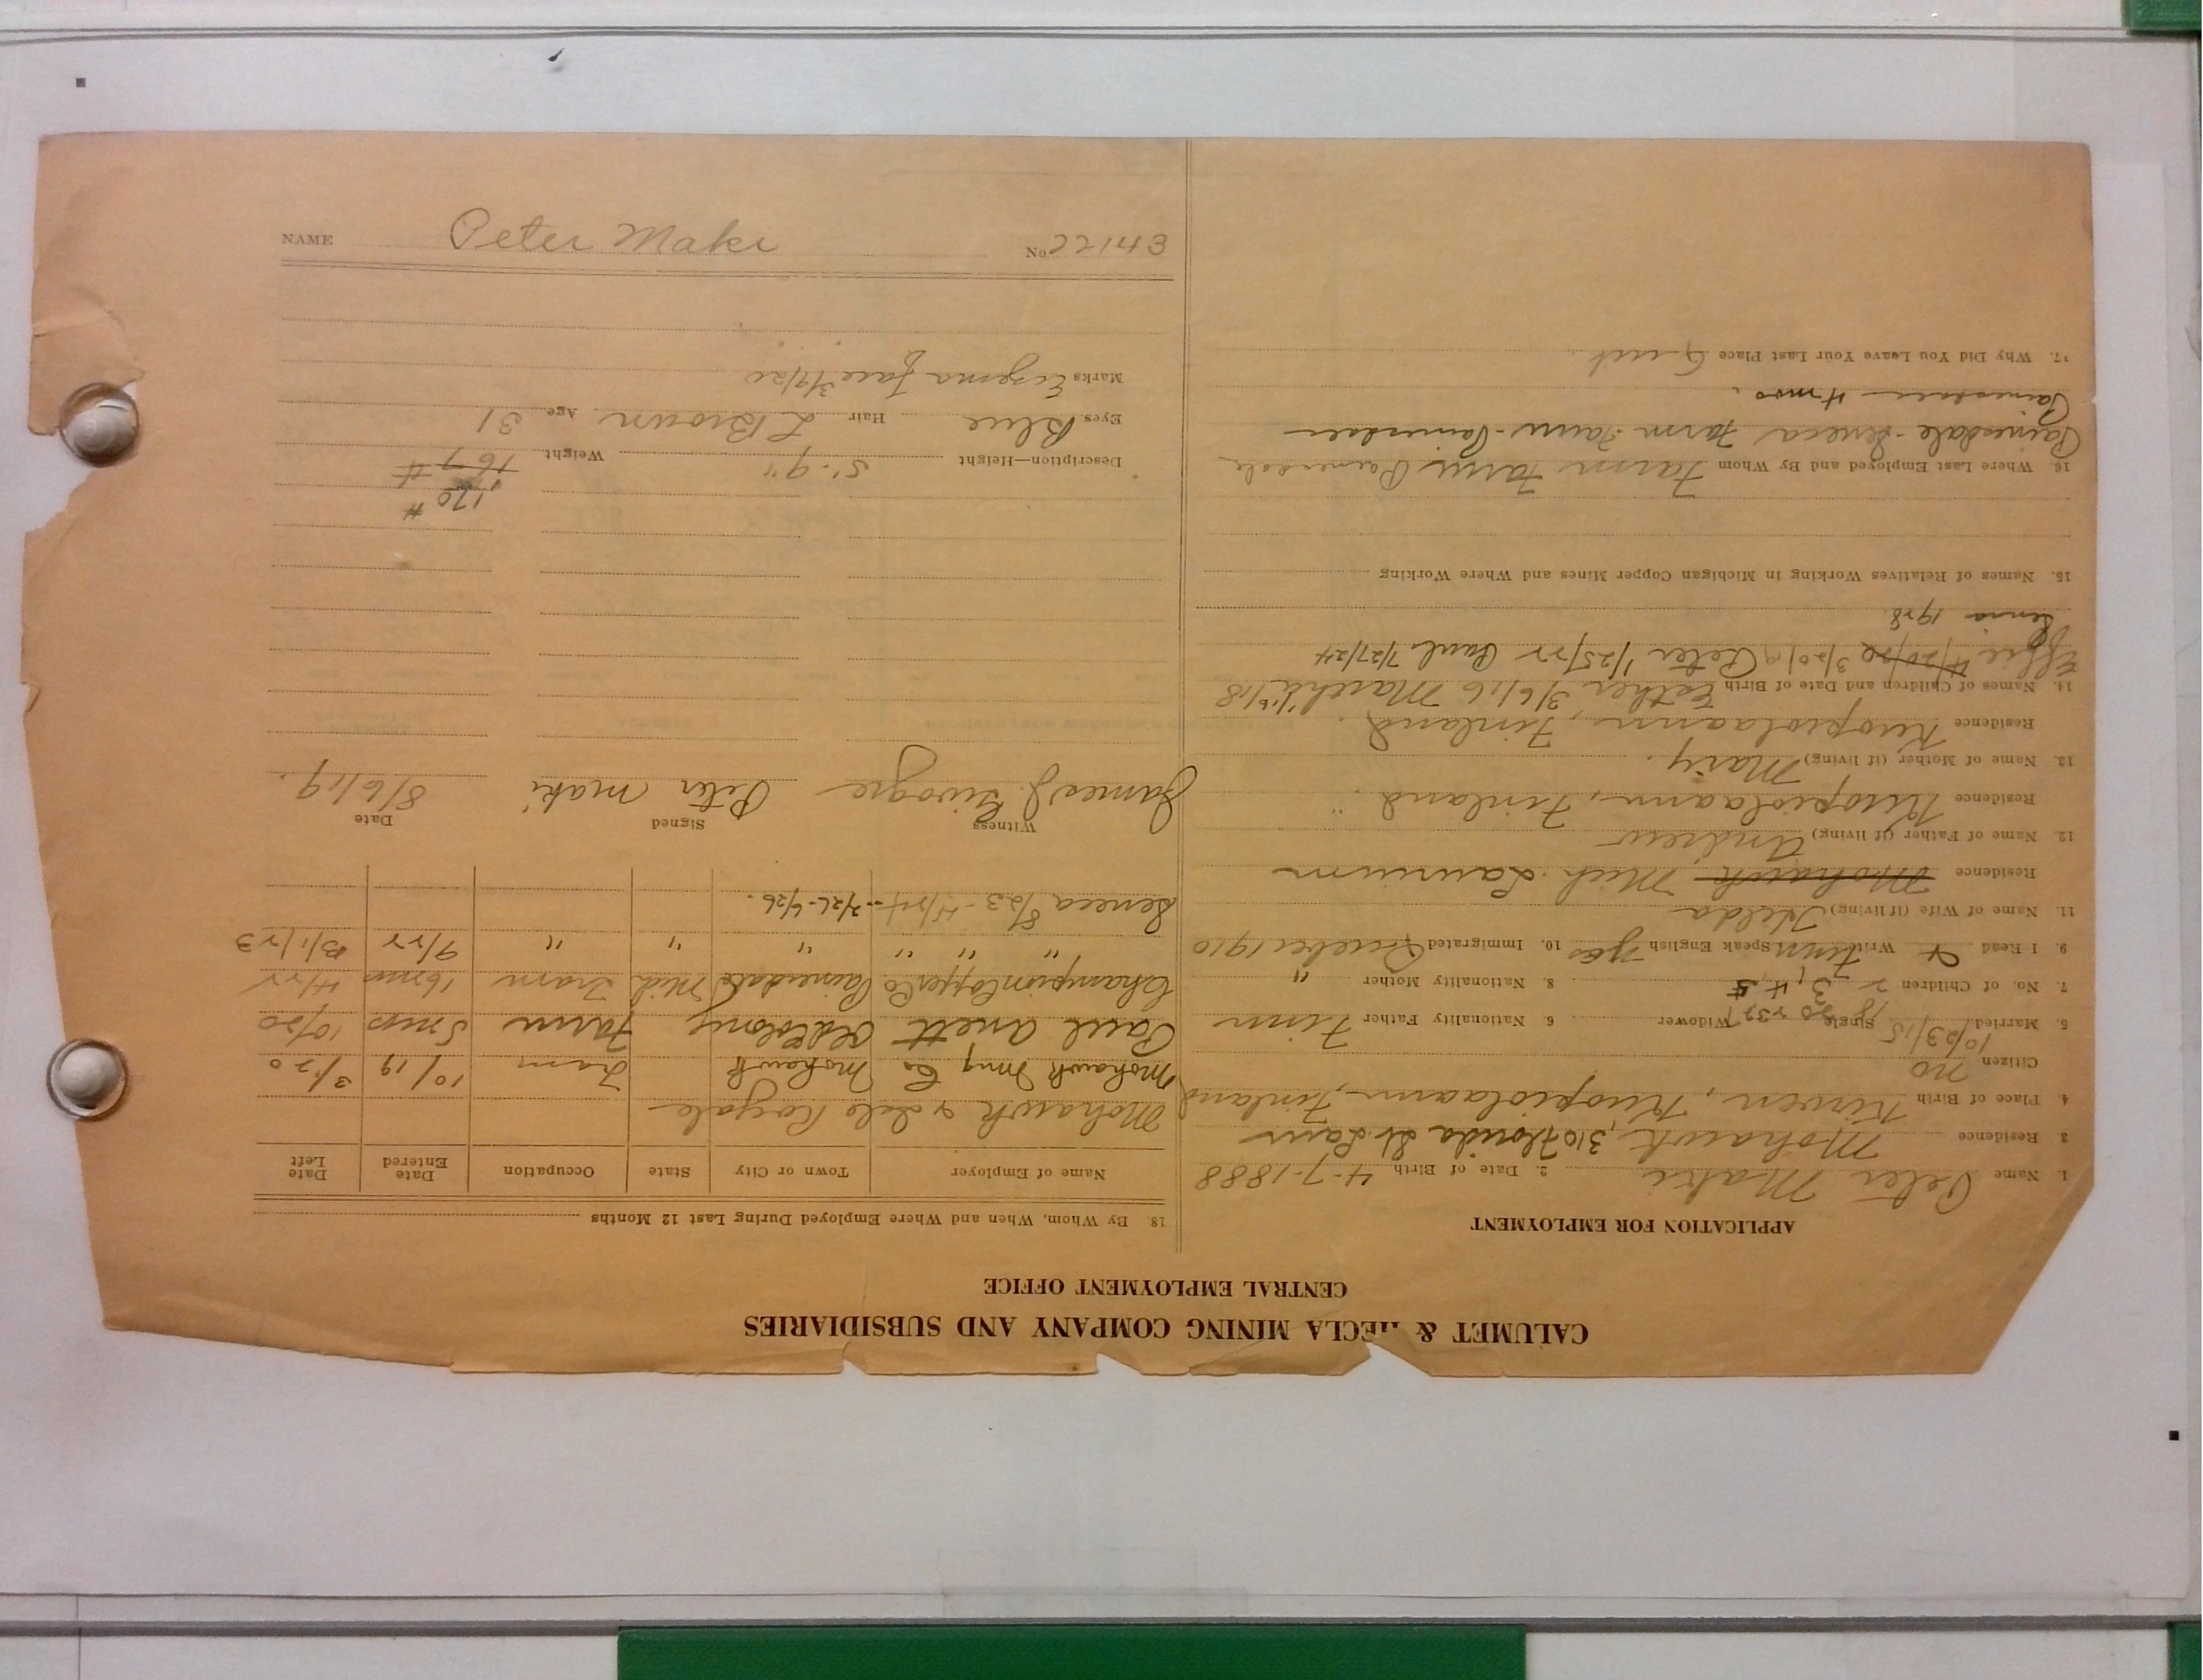 CALUMET & HECLA MINING COMPANY AND SUBSIDIARIES
CENTRAL EMPLOYMENT OFFICE
APPLICATION FOR EMPLOYMENT
1. Name Peter Maki 2. Date of Birth 4-7-1888
3 Residence Mohawk, 310 Florida St. Laur
4. Place of Birth Kuopiolaann, Finland
Citizen no
5. Married 10/23/15 Single Widower 6. Nationality Father Finn
7. No. of Children 2 3 4, 5 8. Nationality Mother "
9. I Read & Write Finn Speak English yes 10. Immigrated Quebec 1910
11. Name of Wife (if living) Hilda
Residence Mohawk Mich. Laurium
12. Name of Father (if living) Andrew
Residence Kuopiolaann, Finland
13. Name of Mother (if living) Mary.
Residence Kuopiolaann, Finland
14. Names of Children and Date of Birth Esther 3/6/16 Martha
Effie 4/20/20 3/20/19 Peter 1/25/22 Paul 7/27/24
1928
15. Names of Relatives Working in Michigan Copper Mines and Where Working
16. Where Last Employed and By Whom Farm Farm Painesdale
Painesdale - Seneca Farm - Farm - Painesdale
Painesdale - 4 mos.
17. Why Did You Leave Your Last Place Quit
18. By Whom, When and Where Employed During Last 12 Months
Name of Employer Town or City State Occupation Date Entered Date Left
Mohawk & Isle Royale
Mohawk Mng Co Mohawk Tram 10/19 3/20
Paul Farm 5 mos 10/20
Champion Copper Co Painesdale Mich Tram 16 mos 4/22
" " " " " " 9/22 3/1/23
Seneca 8/23 - 4/24 - 2/26 - 6/26.
Witness Signed Date
James J. Peter Maki 8/6/19.
170 #
Description—Height 5'-9" Weight 167 #
Eyes Blue Hair L Brown Age 31
Marks Eczema Face 3/9/20
NAME Peter Maki No